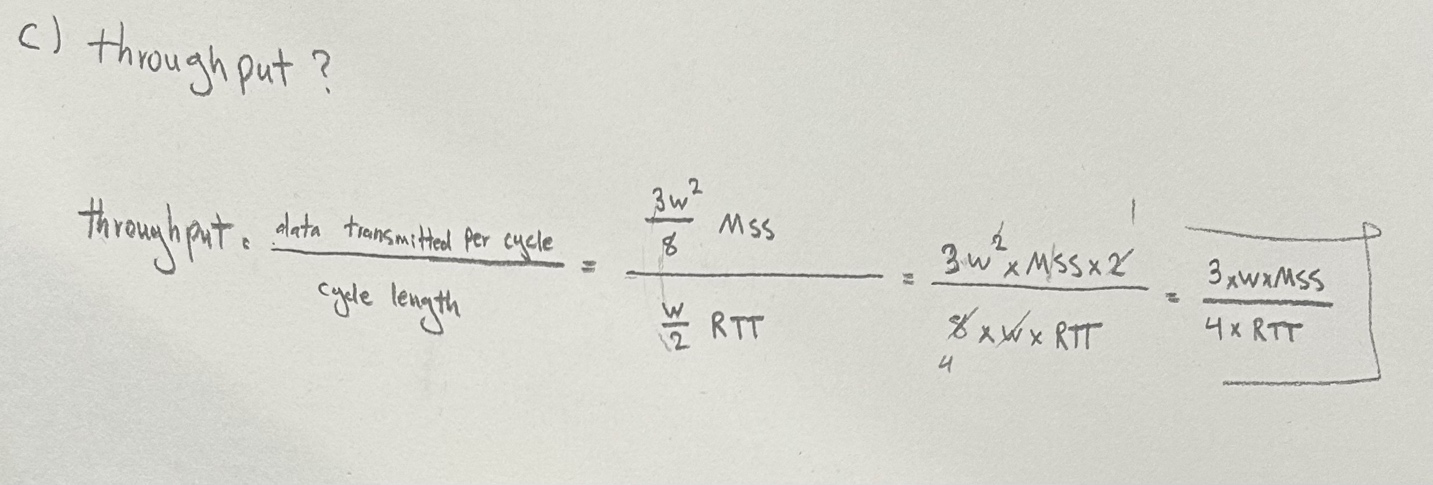 c) throughput?
throughput = data transmitted per cycle / cycle length = (3w²/8 MSS) / (w/2 RTT) = (3w² x MSS x 2) / (8 x w x RTT) = (3 x w x MSS) / (4 x RTT)
1
4